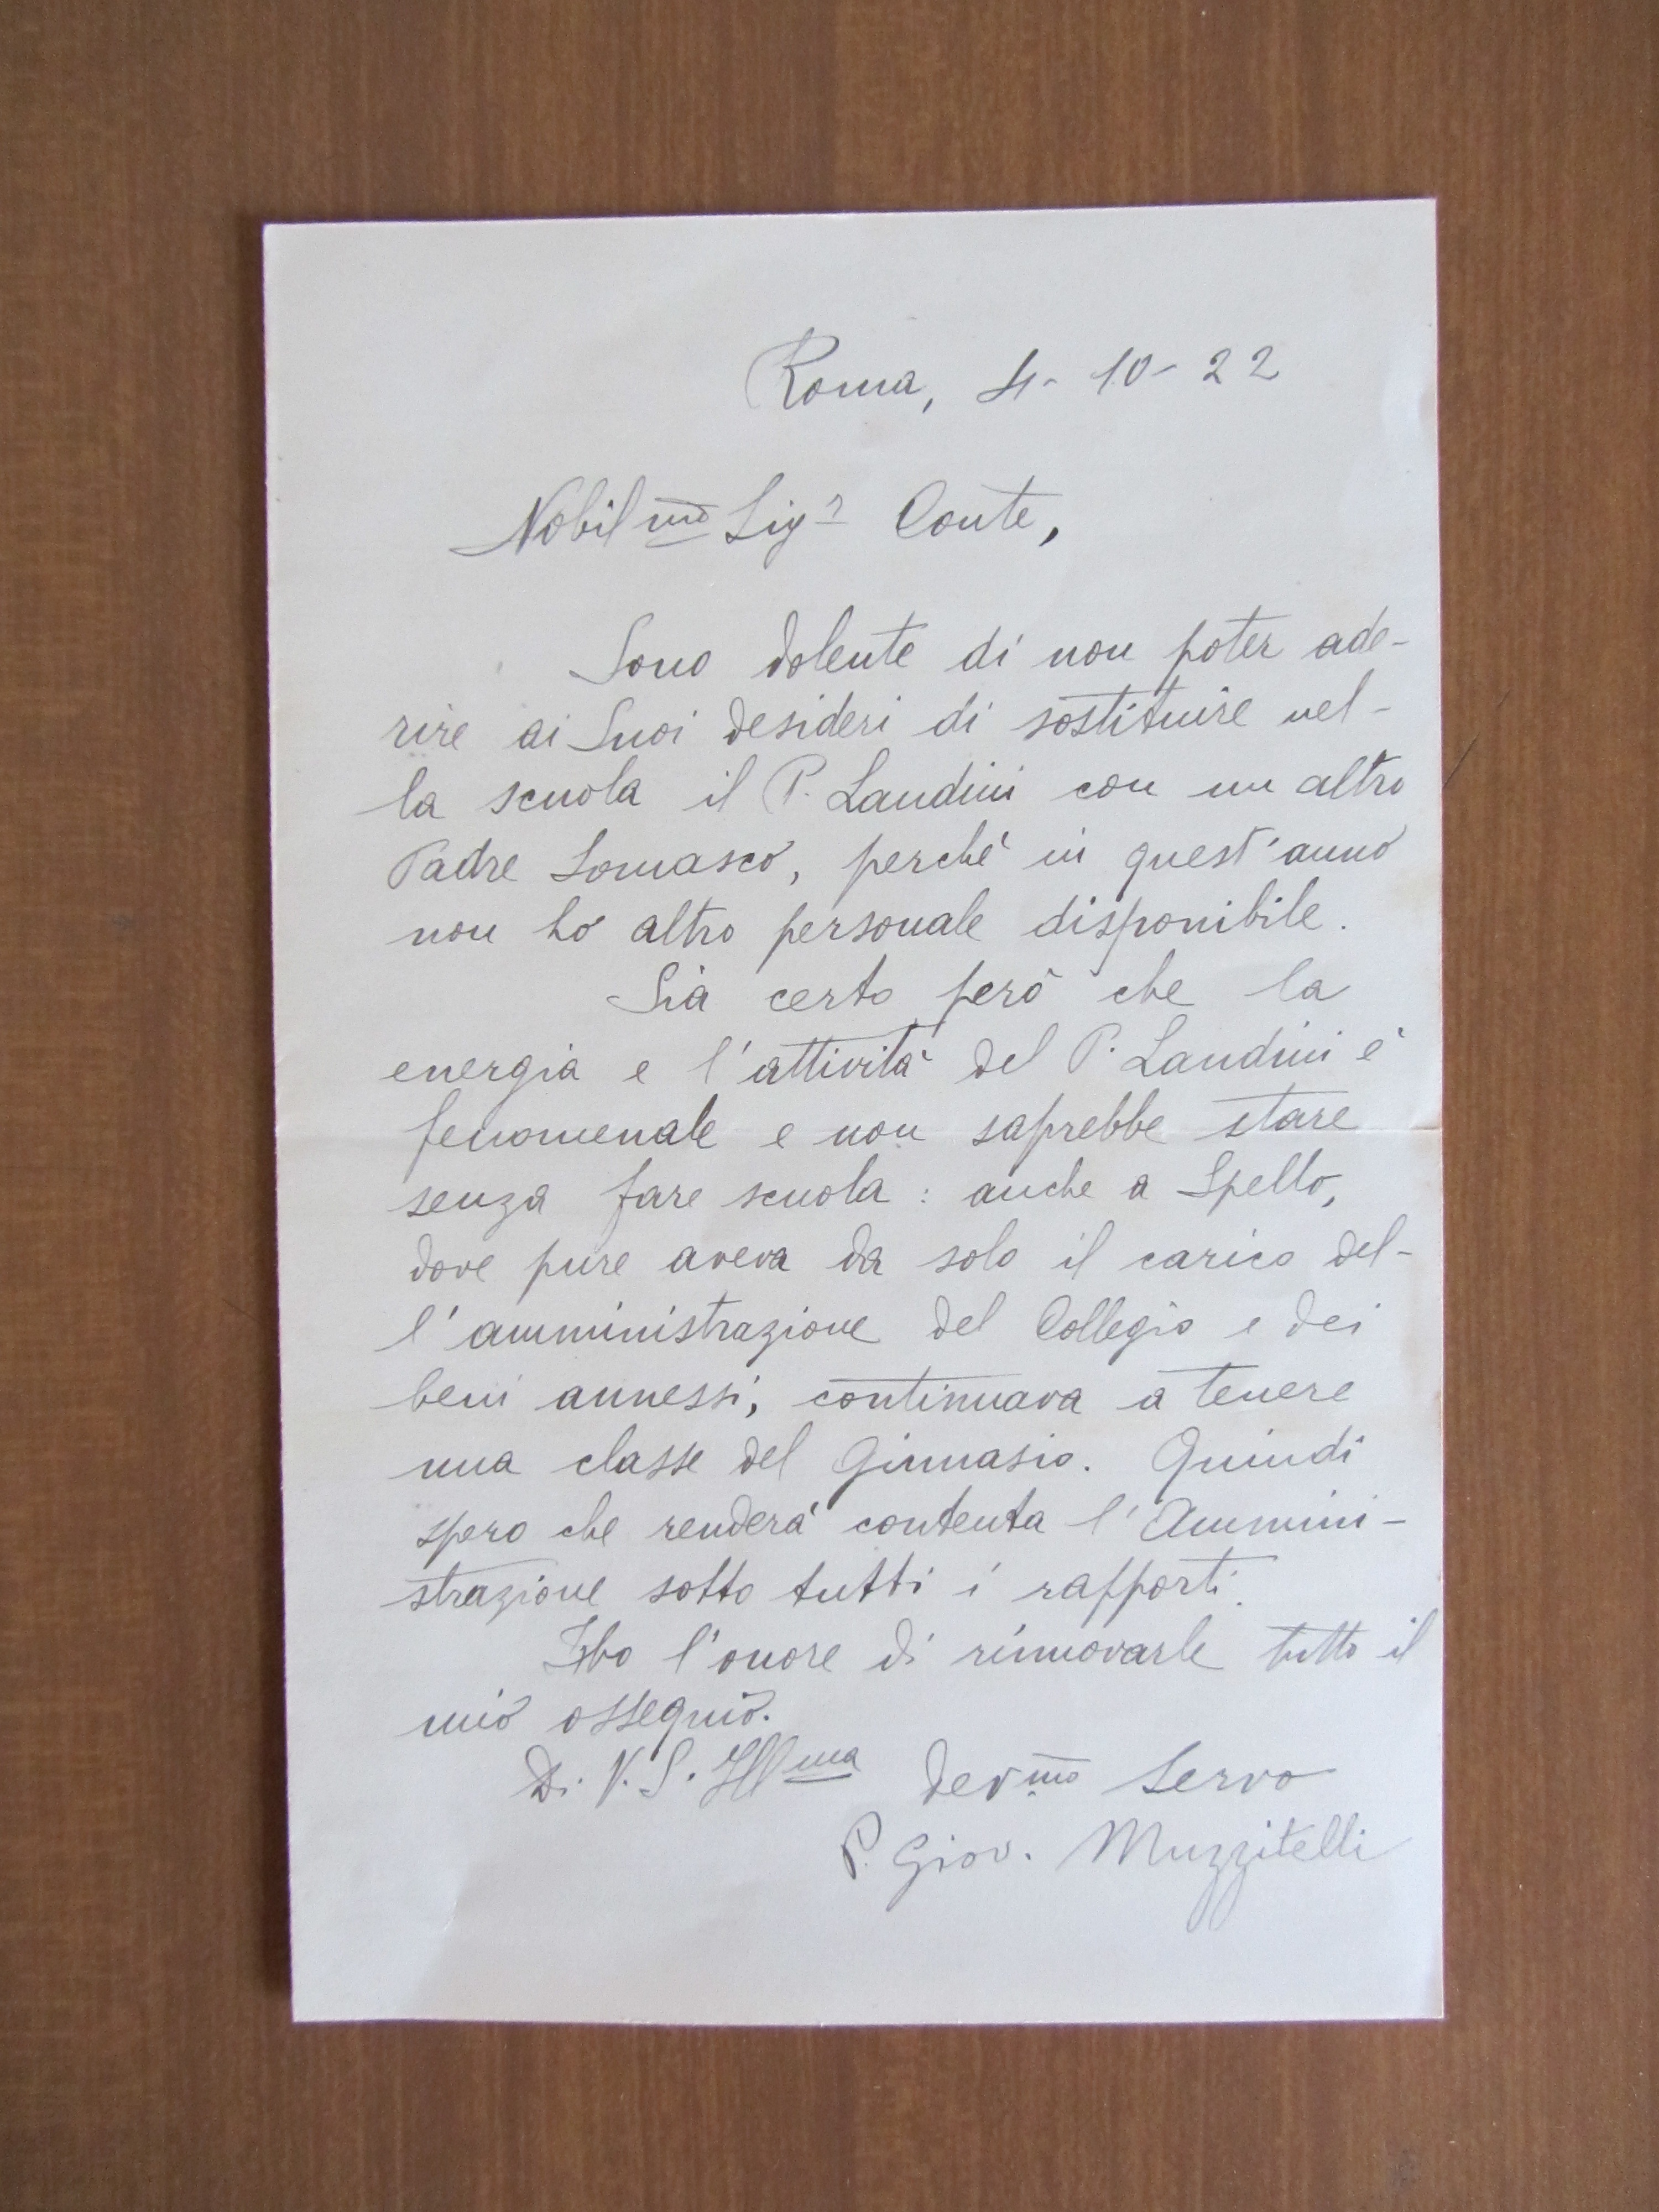 Roma, 4-10-22
Nobilmo Sigr Conte,
Sono dolente di non poter ade-
rire ai Suoi desideri di sostituire nel-
la scuola il P. Landini con un altro
Padre Somasco, perchè in quest'anno
non ho altro personale disponibile.
Sia certo però che la
energia e l'attività del P. Landini è
fenomenale e non saprebbe stare
senza fare scuola: anche a Spello,
dove pure aveva da solo il carico del-
l'amministrazione del Collegio e dei
beni annessi, continuava a tenere
una classe del Ginnasio. Quindi
spero che renderà contenta l'Ammini-
strazione sotto tutti i rapporti.
Ho l'onore di rinnovarle tutto il
mio ossequio.
Di V. S. Illma devmo servo
P. Giov. Muzzitelli